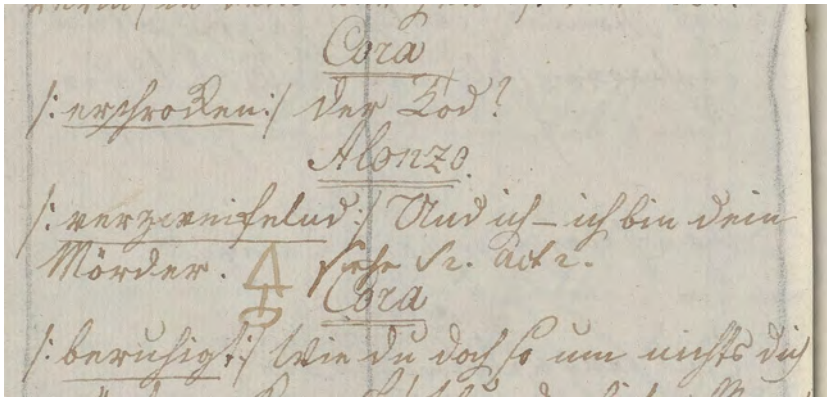 Cora
/: erschrocken :/ der Tod?
Alonzo.
/: verzweifelnd :/ Und ich – ich bin dein
Mörder. siehe Sc. Act 2.
Cora
/: beruhigt :/ Wie du doch so um nichts dich